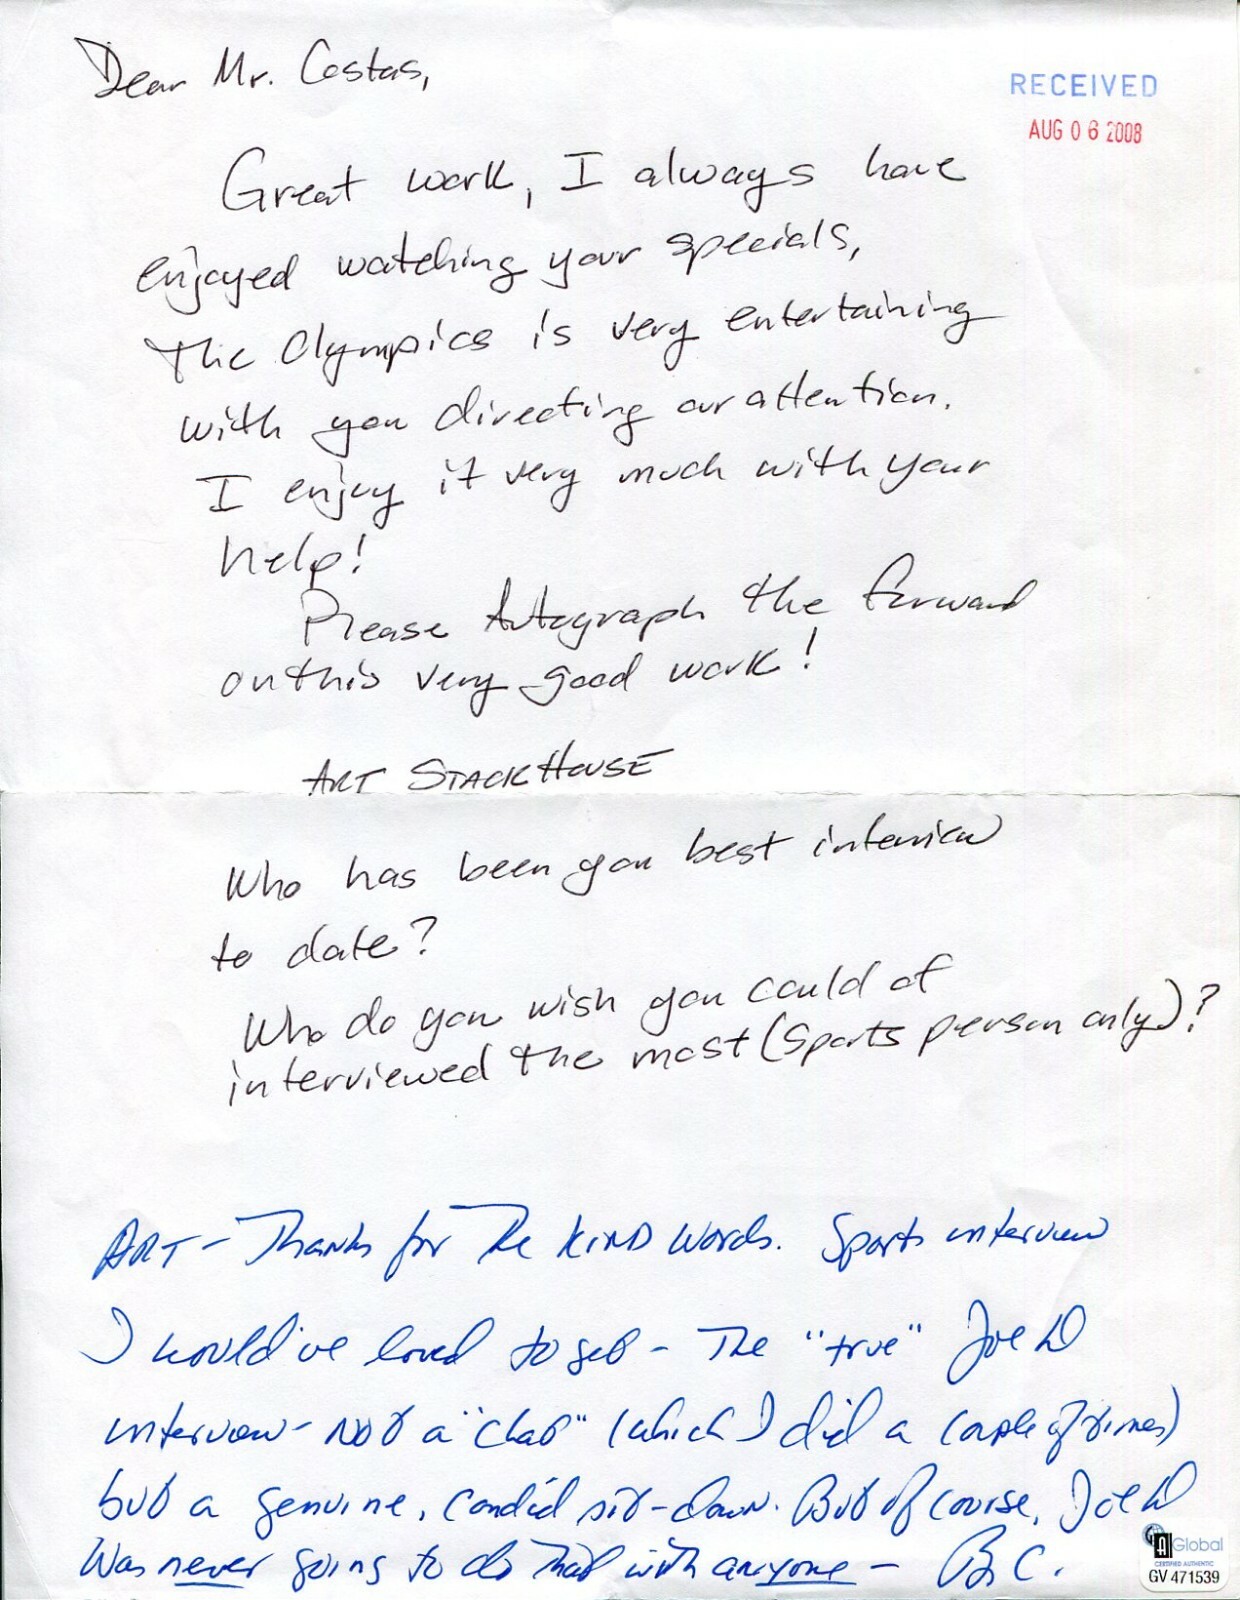 Dear Mr. Costas,
RECEIVED
AUG 06 2008
Great work, I always have
enjoyed watching your specials,
The Olympics is very entertaining
with you directing our attention.
I enjoy it very much with your
help!
Please Autograph the forward
on this very good work!
ART STACKHOUSE
Who has been you best interview
to date?
Who do you wish you could of
interviewed the most (sports person only)?
ART - Thanks for The KIND words. Sports interview
I would've loved to get - The "true" Joe D
interview - Not a "chat" (which I did a couple of times)
but a genuine, candid sit-down. But of course, Joe D
was never going to do that with anyone - B. C.
GA Global
CERTIFIED AUTHENTIC
GV 471539